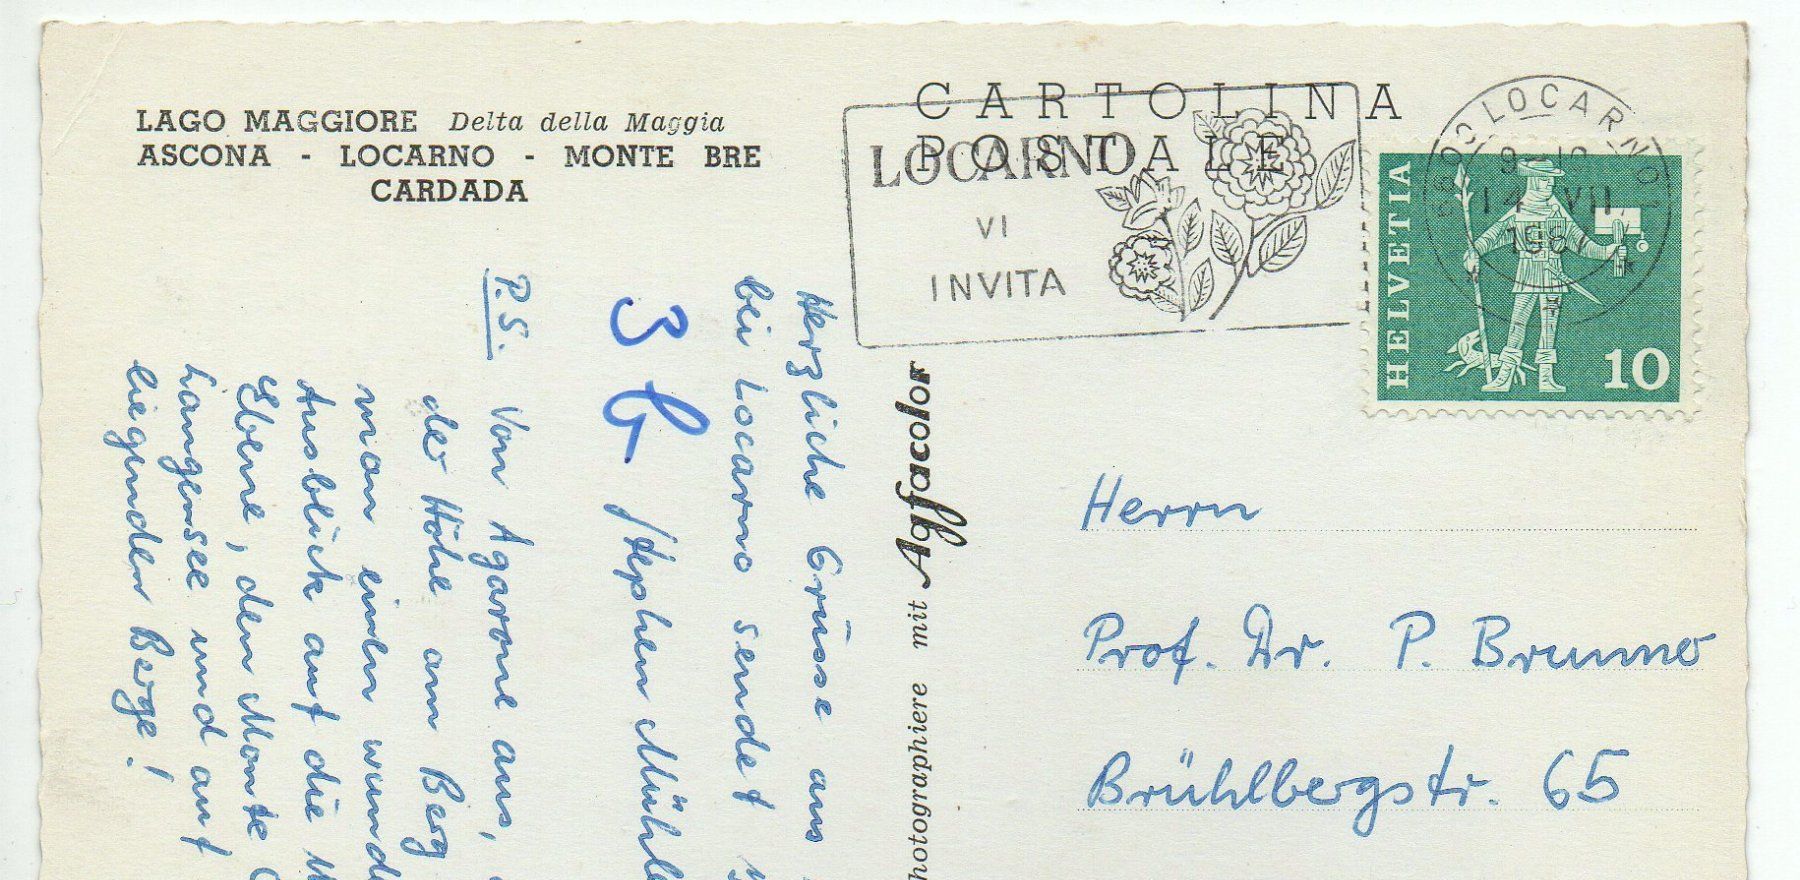 LAGO MAGGIORE Delta della Maggia
ASCONA - LOCARNO - MONTE BRE
CARDADA
CARTOLINA
POSTALE
LOCARNO
VI
INVITA
LOCARNO 1
14 VII
HELVETIA
10
Herzliche Grüsse aus
bei Locarno sendet
Stephen
3 G
P.S. Von Agarone aus,
der Höhe am Berg
man einen
Ausblick auf die
Ebene, den Monte
Langensee und auf
liegenden Berge!
hotographiere mit Agfacolor
Herrn
Prof. Dr. P. Brunner
Brühlbergstr. 65